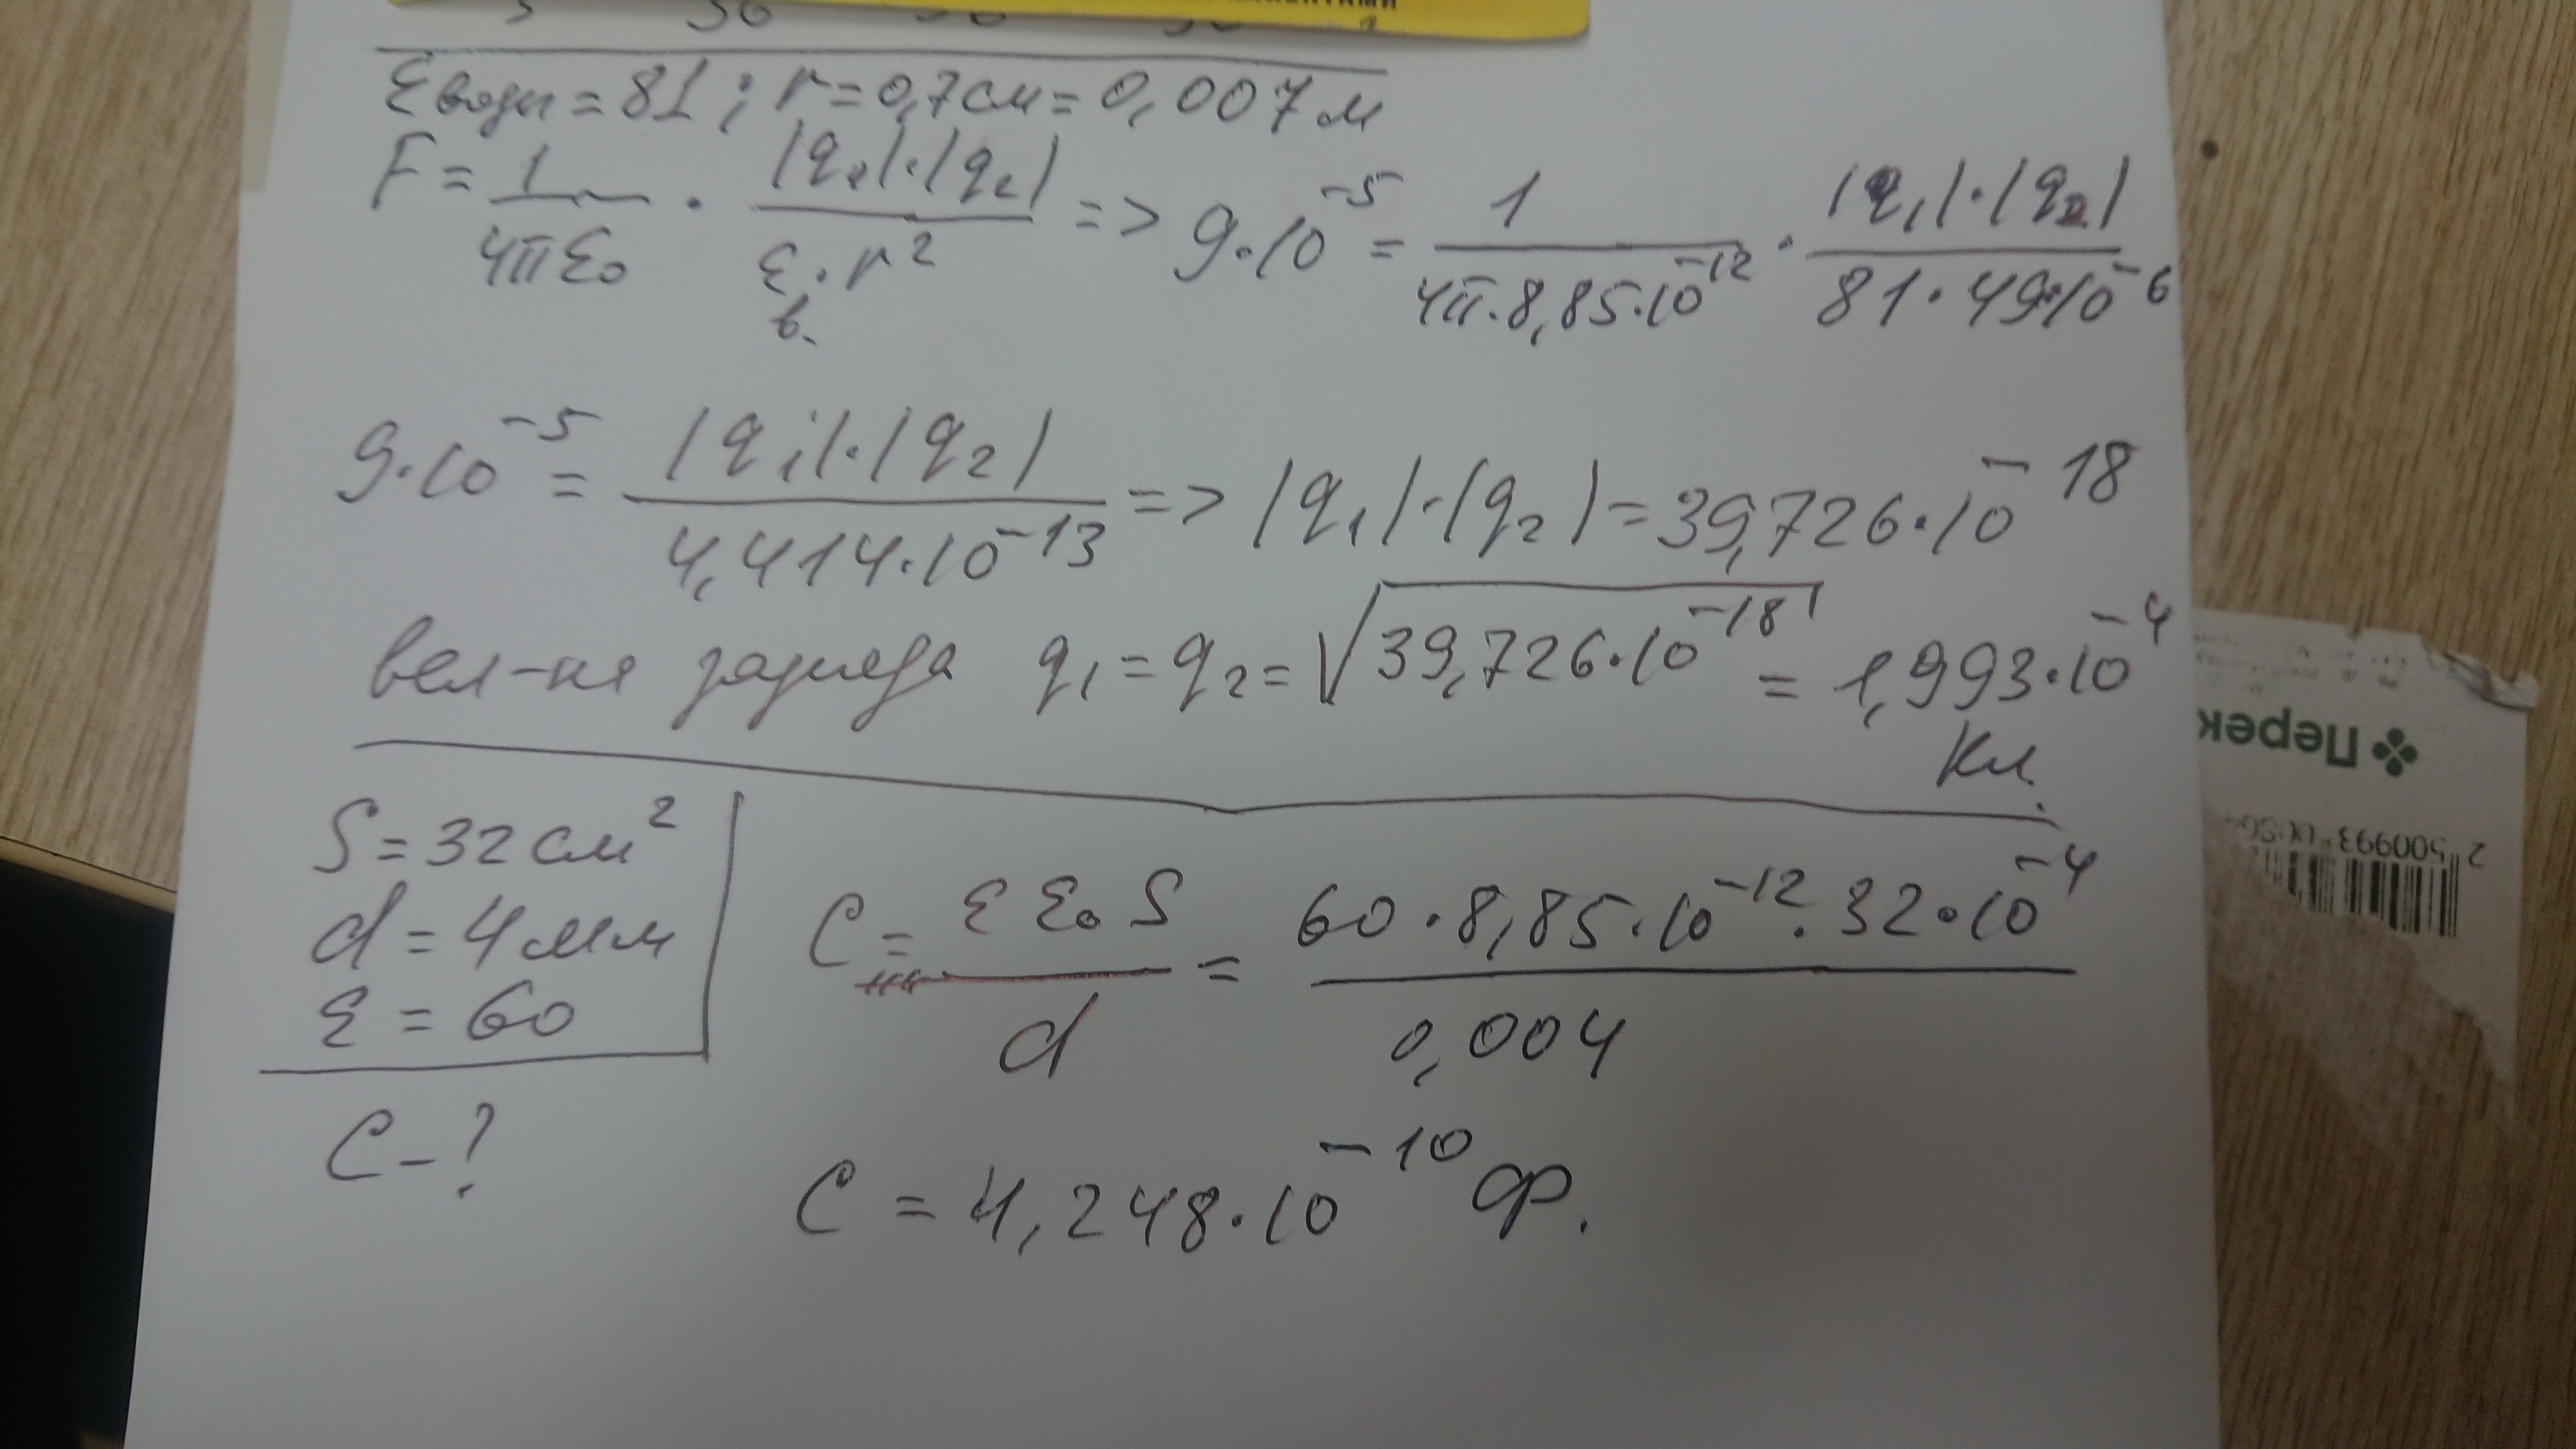 εводы = 81; r = 0,7 см = 0,007 м
F = 1/(4πε₀) · |q₁|·|q₂|/(εв. · r²) => 9·10⁻⁵ = 1/(4π·8,85·10⁻¹²) · |q₁|·|q₂|/(81·49·10⁻⁶)
9·10⁻⁵ = |q₁|·|q₂|/(4,414·10⁻¹³) => |q₁|·|q₂| = 39,726·10⁻¹⁸
вел-на заряда q₁ = q₂ = √(39,726·10⁻¹⁸) = 1,993·10⁻⁴
Кл.
S = 32 см²
d = 4 мм
ε = 60
C - ?
C = εε₀S/d = 60·8,85·10⁻¹²·32·10⁻⁴/0,004
C = 4,248·10⁻¹⁰ ф.
Перек
2 500993